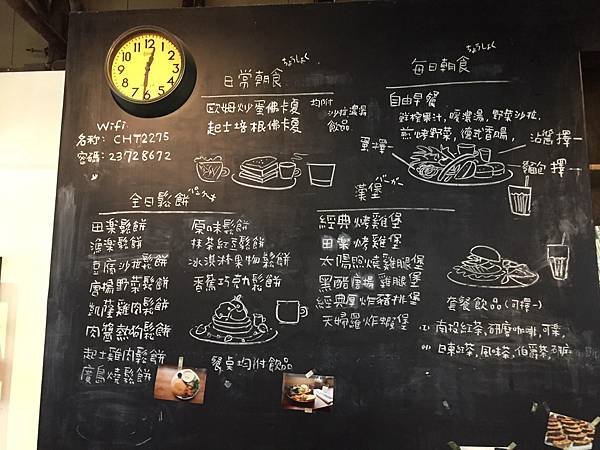 Wifi
名称: CHT2275
密碼: 23728672
日常朝食 ちょうしょく
歐姆炒蛋佛卡夏
起士培根佛卡夏
均附
沙拉濃湯
飲品
每日朝食 ちょうしょく
自由早餐
鮮橙果汁,暖濃湯,野菜沙拉,
煎烤野菜,德式香腸,
蛋擇一
沾醬擇一
麵包擇一
全日鬆餅
田樂鬆餅
漁樂鬆餅
豆腐沙拉鬆餅
廣場野菜鬆餅
凱薩雞肉鬆餅
肉醬熱狗鬆餅
起士雞肉鬆餅
廣島燒鬆餅
原味鬆餅
抹茶紅豆鬆餅
冰淇淋果物鬆餅
香蕉巧克力鬆餅
餐桌均附飲品
漢堡 バーガー
經典烤雞堡
田樂烤雞堡
太陽照燒雞腿堡
黑醋廣場雞腿堡
經典厚炸豬排堡
天婦羅炸蝦堡
套餐飲品(可擇一)
南投紅茶,研磨咖啡,可樂,
日東紅茶,風味茶,伯爵茶